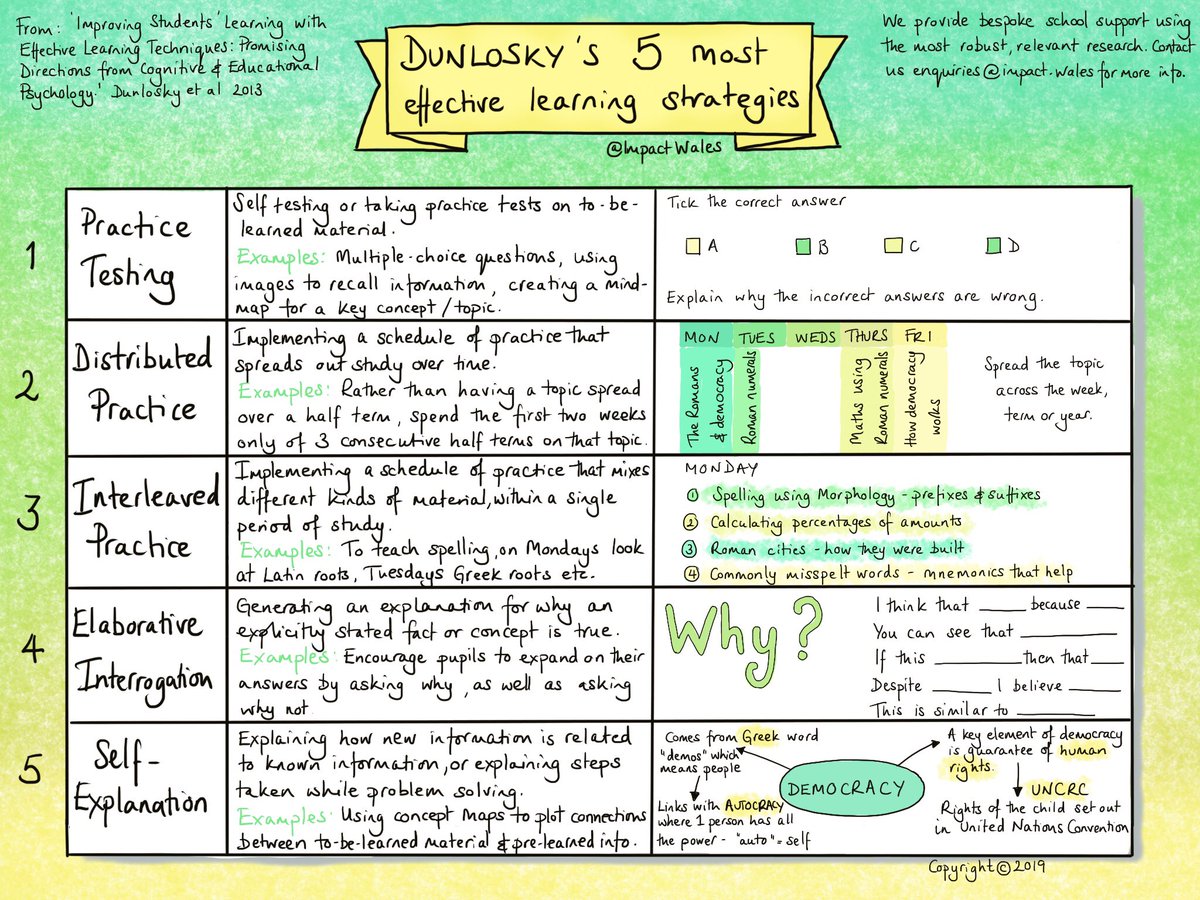 From: 'Improving Students' Learning with
Effective Learning Techniques: Promising
Directions from Cognitive & Educational
Psychology.' Dunlosky et al 2013
DUNLOSKY'S 5 most
effective learning strategies
@ImpactWales
We provide bespoke school support using
the most robust, relevant research. Contact
us enquiries@impact.wales for more info.
1
Practice
Testing
Self testing or taking practice tests on to-be-
learned material.
Examples: Multiple-choice questions, using
images to recall information, creating a mind-
map for a key concept/topic.
Tick the correct answer
A
B
C
D
Explain why the incorrect answers are wrong.
2
Distributed
Practice
Implementing a schedule of practice that
spreads out study over time.
Examples: Rather than having a topic spread
over a half term, spend the first two weeks
only of 3 consecutive half terms on that topic.
MON TUES WEDS THURS FRI
The Romans
& democracy
Roman numerals
Maths using
Roman numerals
How democracy
works
Spread the topic
across the week,
term or year.
3
Interleaved
Practice
Implementing a schedule of practice that mixes
different kinds of material, within a single
period of study.
Examples: To teach spelling, on Mondays look
at Latin roots, Tuesdays Greek roots etc.
MONDAY
1 Spelling using Morphology - prefixes & suffixes
2 Calculating percentages of amounts
3 Roman cities - how they were built
4 Commonly misspelt words - mnemonics that help
4
Elaborative
Interrogation
Generating an explanation for why an
explicitly stated fact or concept is true.
Examples: Encourage pupils to expand on their
answers by asking why, as well as asking
why not
Why?
I think that ____ because ____
You can see that ____
If this ____ then that ____
Despite ____ I believe ____
This is similar to ____
5
Self-
Explanation
Explaining how new information is related
to known information, or explaining steps
taken while problem solving.
Examples: Using concept maps to plot connections
between to-be-learned material & pre-learned info.
Comes from Greek word
"demos" which
means people
Links with AUTOCRACY
where 1 person has all
the power - "auto" = self
DEMOCRACY
A key element of democracy
is guarantee of human
rights.
UNCRC
Rights of the child set out
in United Nations Convention
Copyright © 2019